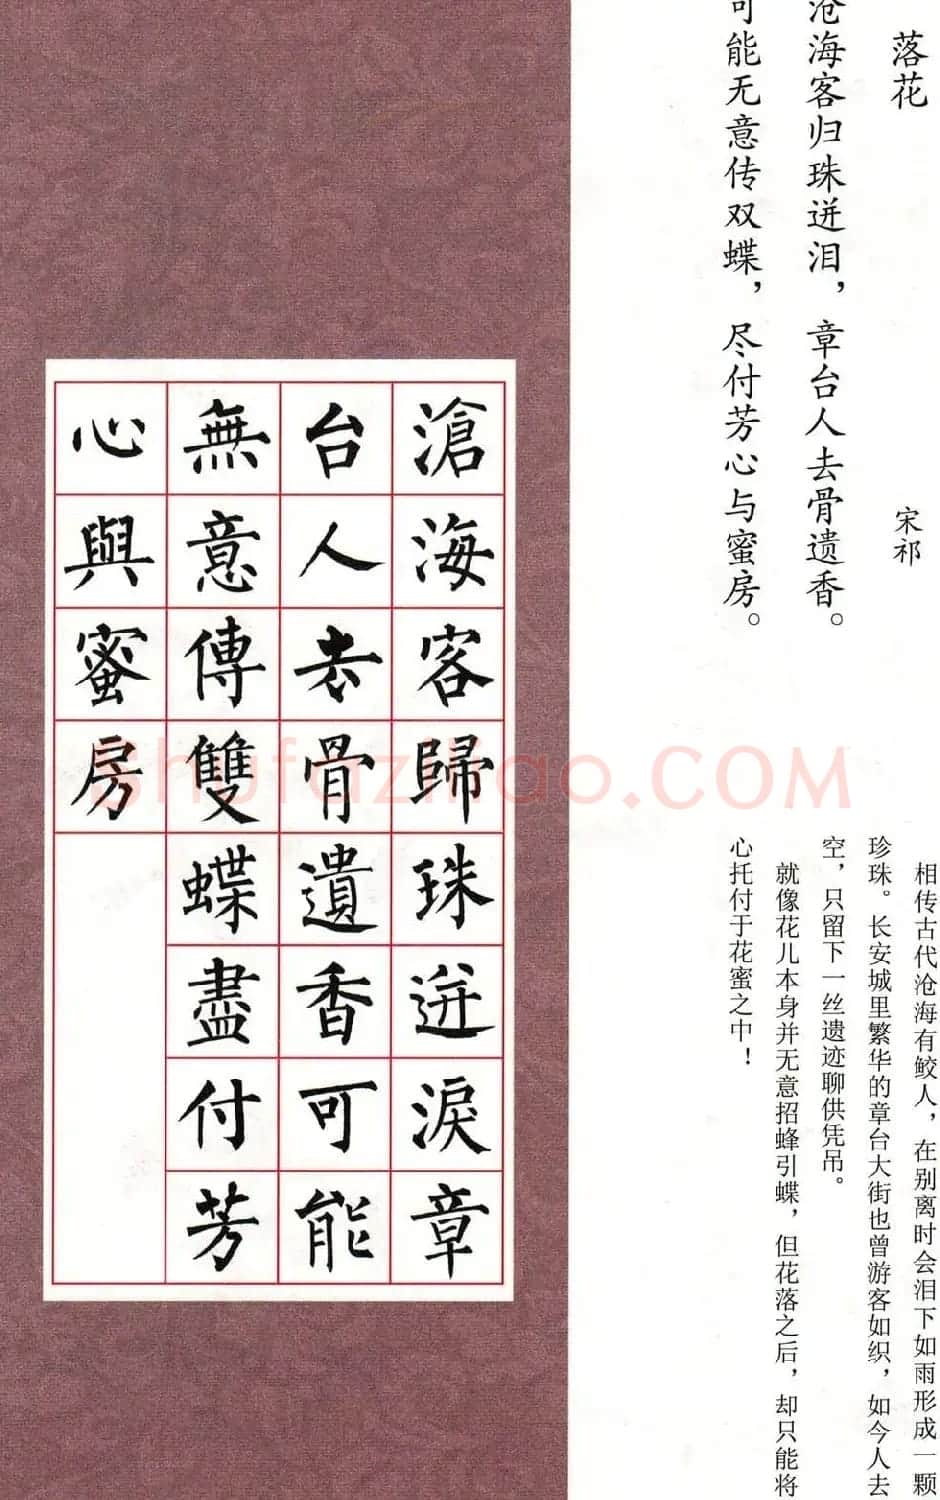 落花
宋祁
沧海客归珠迸泪，章台人去骨遗香。
可能无意传双蝶，尽付芳心与蜜房。
相传古代沧海有鲛人，在别离时会泪下如雨形成一颗
珍珠。长安城里繁华的章台大街也曾游客如织，如今人去
空，只留下一丝遗迹聊供凭吊。
就像花儿本身并无意招蜂引蝶，但花落之后，却只能将
心托付于花蜜之中！
滄海客歸珠迸淚章
台人去骨遺香可能
無意傳雙蝶盡付芳
心與蜜房
shufaziliao.COM